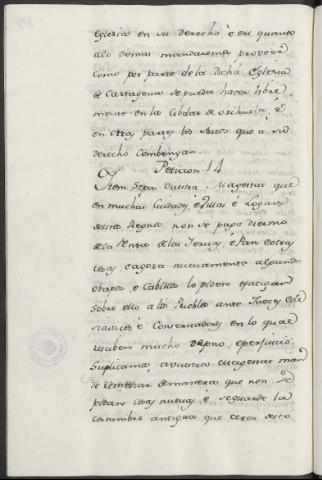 Iglesia en su derecho é en quanto
a lo demas mandaremos proveer
como por parte de la dicha Eglesia
de Cartagena se pueda hacer libre
mente en la Cibdat de orihuela, é
en otras partes los Autos que a su
derecho Combengan
Peticion 14
Otrosi Sepa vuestra Magestat que
en muchas Ciudades, é Villas é Logares
destos Reynos non se paga diezmo
de la Renta de las Yervas, é Pan é otras
cosas é agora nuevamente algunos
obispos, é Cabildos lo piden é fatigan
sobre ello a los Pueblos ante Jueces Ecle
siasticos é Conservadores, en lo qual
resciben mucho dapno, é perjuicio
Suplicamos a vuestra Magestat man
de remediar de manera que non se
pidan cosas nuevas, é se guarde la
costumbre antigua que cerca desto